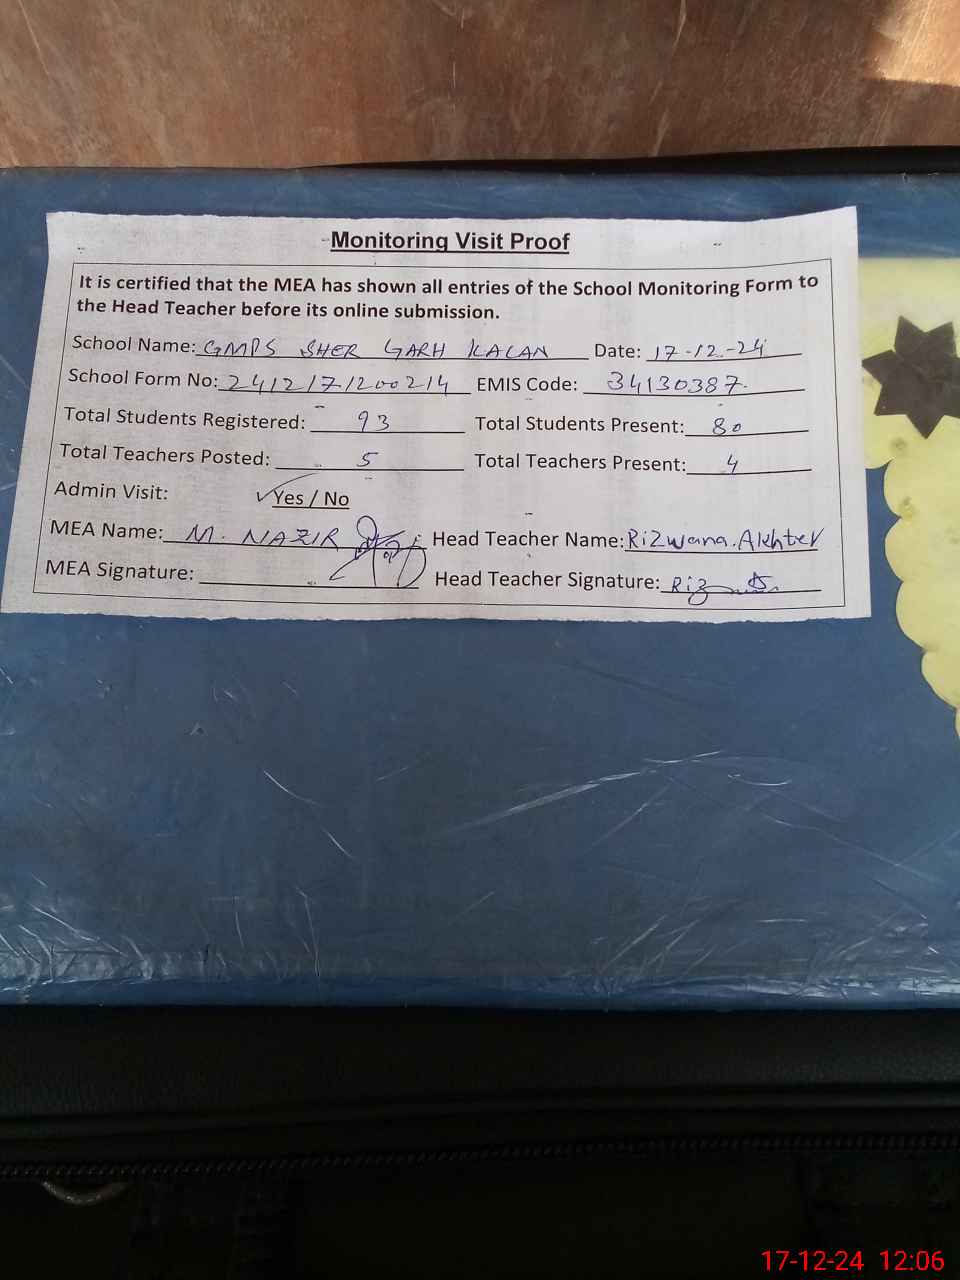 Monitoring Visit Proof
It is certified that the MEA has shown all entries of the School Monitoring Form to
the Head Teacher before its online submission.
School Name: GMPS SHER GARH KALAN Date: 17-12-24
School Form No: 2412171200214 EMIS Code: 34130387
Total Students Registered: 93 Total Students Present: 80
Total Teachers Posted: 5 Total Teachers Present: 4
Admin Visit: ✓Yes / No
MEA Name: M. NAZIR Head Teacher Name: Rizwana.Akhter
MEA Signature: Head Teacher Signature: Riz
17-12-24 12:06